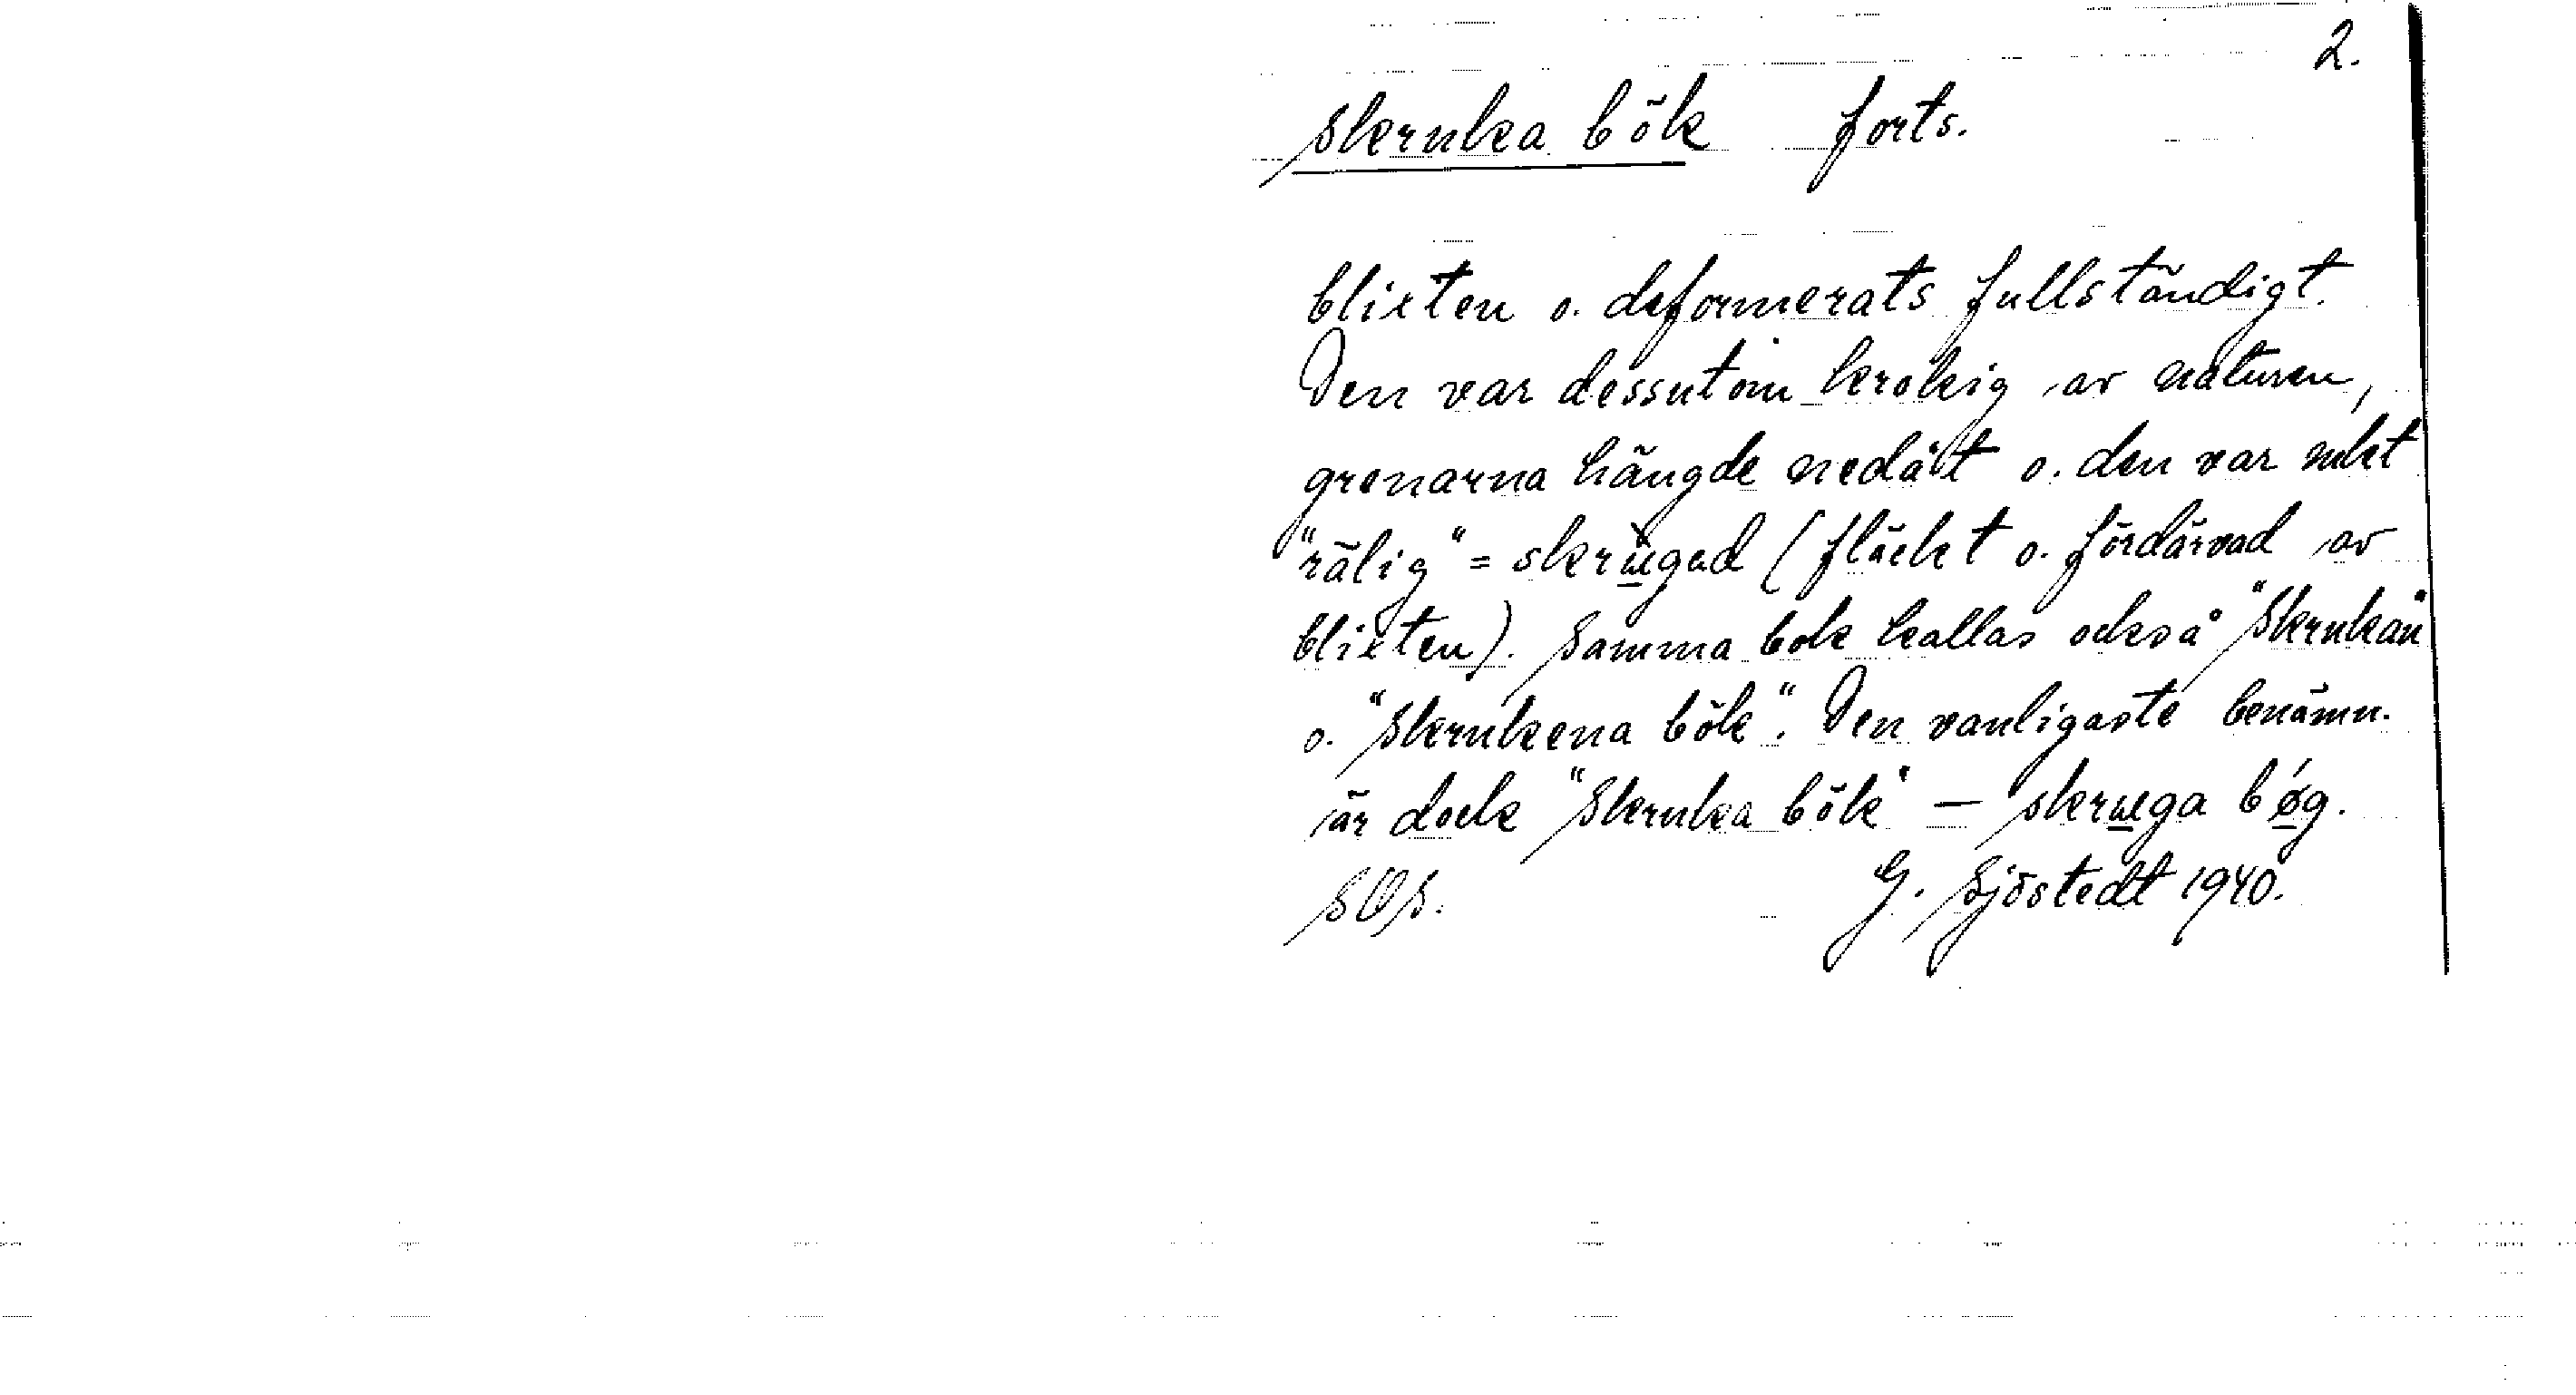 2.
Skruka bök forts.
blixten o. deformerats fullständigt.
Den var dessutom krokig av naturen,
grenarna hängde nedåt o. den var
"rälig" = skrugad (fläckt o. fördärvad av
blixten). Samma bok kallas också "Skrukan"
o. "Skrukena bök". Den vanligaste benämn.
är dock "Skruka bök" — skruga bøg.
SOS. G. Sjöstedt 1940.